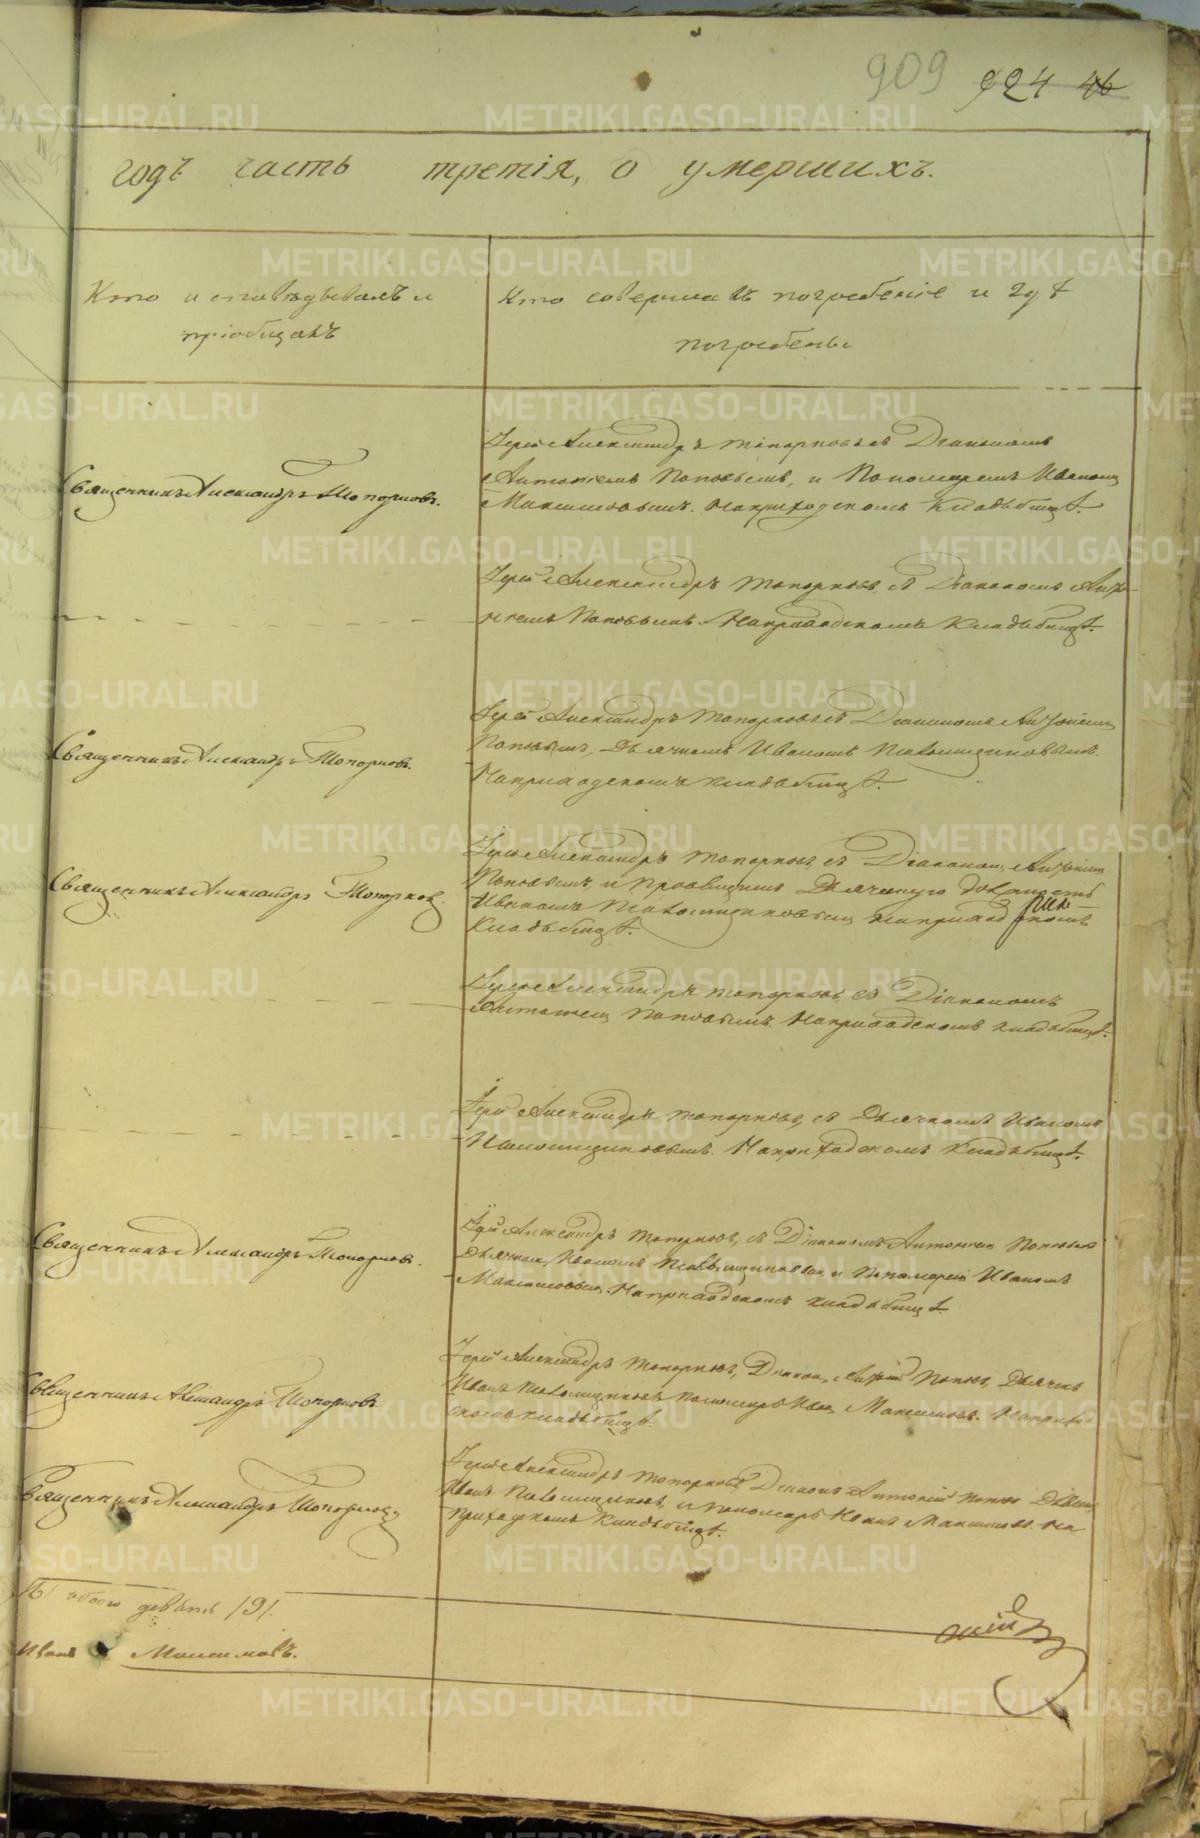 909 924 46
годъ часть третія, о умершихъ.
Кто исповѣдывалъ и
пріобщалъ
Кто совершалъ погребеніе и гдѣ
погребены
Священникъ Александръ Топорковъ.
Іерей Александръ Топорковъ съ Діакономъ
Антоніемъ Поповымъ, и Пономаремъ Иваномъ
Максимовымъ. На приходскомъ кладбищѣ.
Іерей Александръ Топорковъ, съ Діакономъ Анто-
ніемъ Поповымъ. На приходскомъ Кладбищѣ.
Священникъ Александръ Топорковъ.
Іерей Александръ Топорковъ съ Діакономъ Антоніемъ
Поповымъ, Дьячкомъ Иваномъ
На приходскомъ кладбищѣ.
Священникъ Александръ Топорковъ.
Іерей Александръ Топорковъ, съ Діакономъ Антоніемъ
Поповымъ, и правящимъ Дьяческую должность
Иваномъ на приходскомъ
Кладбищѣ.
Іерей Александръ Топорковъ, съ Діакономъ
Антоніемъ Поповымъ. На приходскомъ кладбищѣ.
Іерей Александръ Топорковъ, съ Дьячкомъ Иваномъ
На приходскомъ Кладбищѣ.
Священникъ Александръ Топорковъ.
Іерей Александръ Топорковъ, съ Діакономъ Антоніемъ Поповымъ
Дьячкомъ Иваномъ и Пономаремъ Иваномъ
Максимовымъ. На приходскомъ кладбищѣ.
Священникъ Александръ Топорковъ
Іерей Александръ Топорковъ, Діаконъ Антоній Поповъ, Дьячекъ
Иванъ Пономарь Иванъ Максимовъ. На приход-
скомъ кладбищѣ.
Священникъ Александръ Топорковъ
Іерей Александръ Топорковъ Діаконъ Антоній Поповъ Дьячекъ
Иванъ и пономарь Иванъ Максимовъ. На
приходскомъ Кладбищѣ.
обоего девять /9/.
Иванъ Максимовъ.